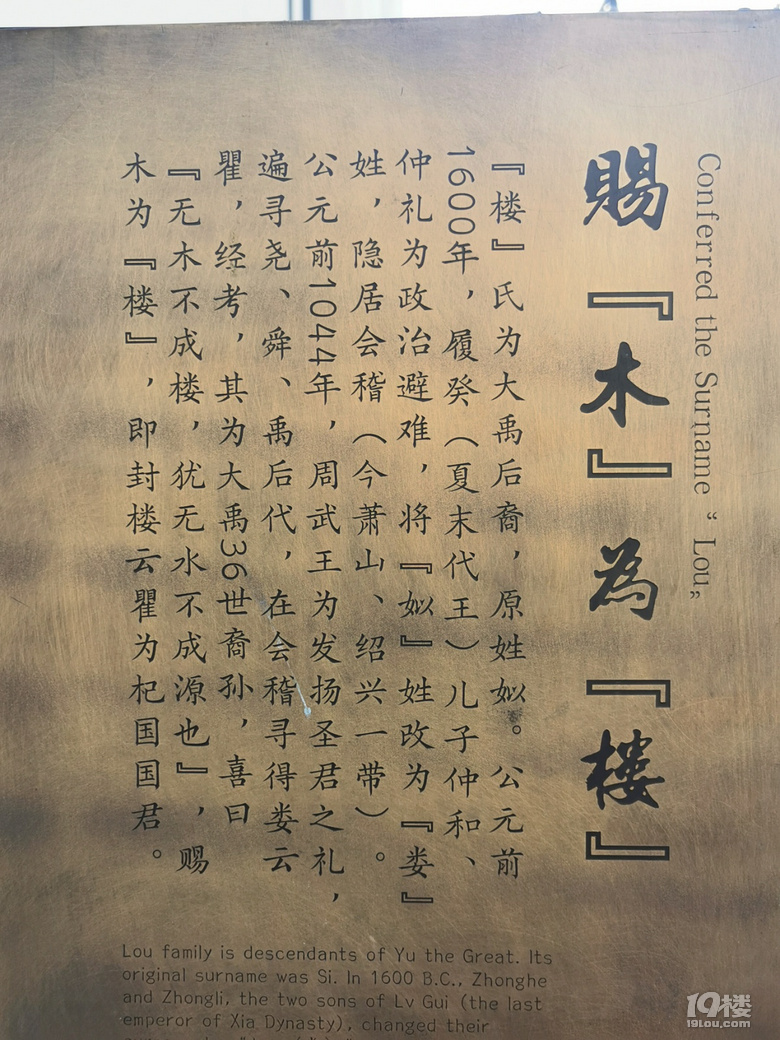 賜『木』為『楼』
Conferred the Surname “Lou”
『楼』氏为大禹后裔，原姓姒。公元前
1600年，履癸（夏末代王）儿子仲和、
仲礼为政治避难，将『姒』姓改为『娄』
姓，隐居会稽（今萧山、绍兴一带）。
公元前1044年，周武王为发扬圣君之礼，
遍寻尧、舜、禹后代，在会稽寻得娄云
瞿，经考，其为大禹36世裔孙，喜曰
『无木不成楼，犹无水不成源也』，赐
木为『楼』，即封楼云瞿为杞国国君。
Lou family is descendants of Yu the Great. Its
original surname was Si. In 1600 B.C., Zhonghe
and Zhongli, the two sons of Lv Gui (the last
emperor of Xia Dynasty), changed their
19楼
19lou.com